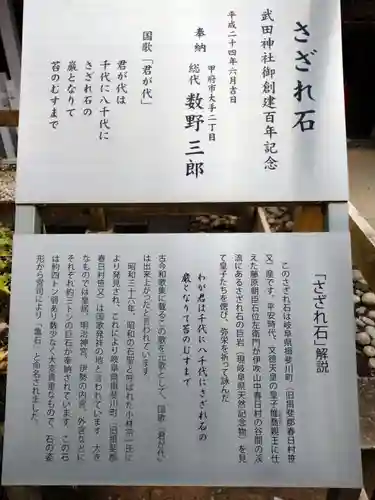 さざれ石
武田神社御創建百年記念
平成二十四年六月吉日
甲府市大手二丁目
奉納　総代　数野三郎
国歌「君が代」
君が代は
千代に八千代に
さざれ石の
巌となりて
苔のむすまで
「さざれ石」解説
このさざれ石は岐阜県揖斐川町（旧揖斐郡春日村笹
又）産です。平安時代、文徳天皇の皇子惟喬親王に仕
えた藤原朝臣石位左衛門が伊吹山中春日村の谷間の渓
流にあるさざれ石の巨岩（現岐阜県天然記念物）を見
て皇子たちを偲び、弥栄を祈って詠んだ
わが君は千代に八千代にさざれ石の
巌となりて苔のむすまで
古今和歌集に載るこの歌を元歌として、国歌「君が代」
は出来上がったと言われています。
昭和三十六年、昭和の石聖と呼ばれた小林宗一氏に
より発見され、これにより岐阜県揖斐川町（旧揖斐郡
春日村笹又）は国歌発祥の地と言われています。大き
なものでは皇居、明治神宮、伊勢の内宮、外宮などに
それぞれ約三トンの巨石が奉納されています。この石
は約四トン弱あり数少なく大変貴重なもので、石の姿
形から宮司により「亀石」と命名されました。